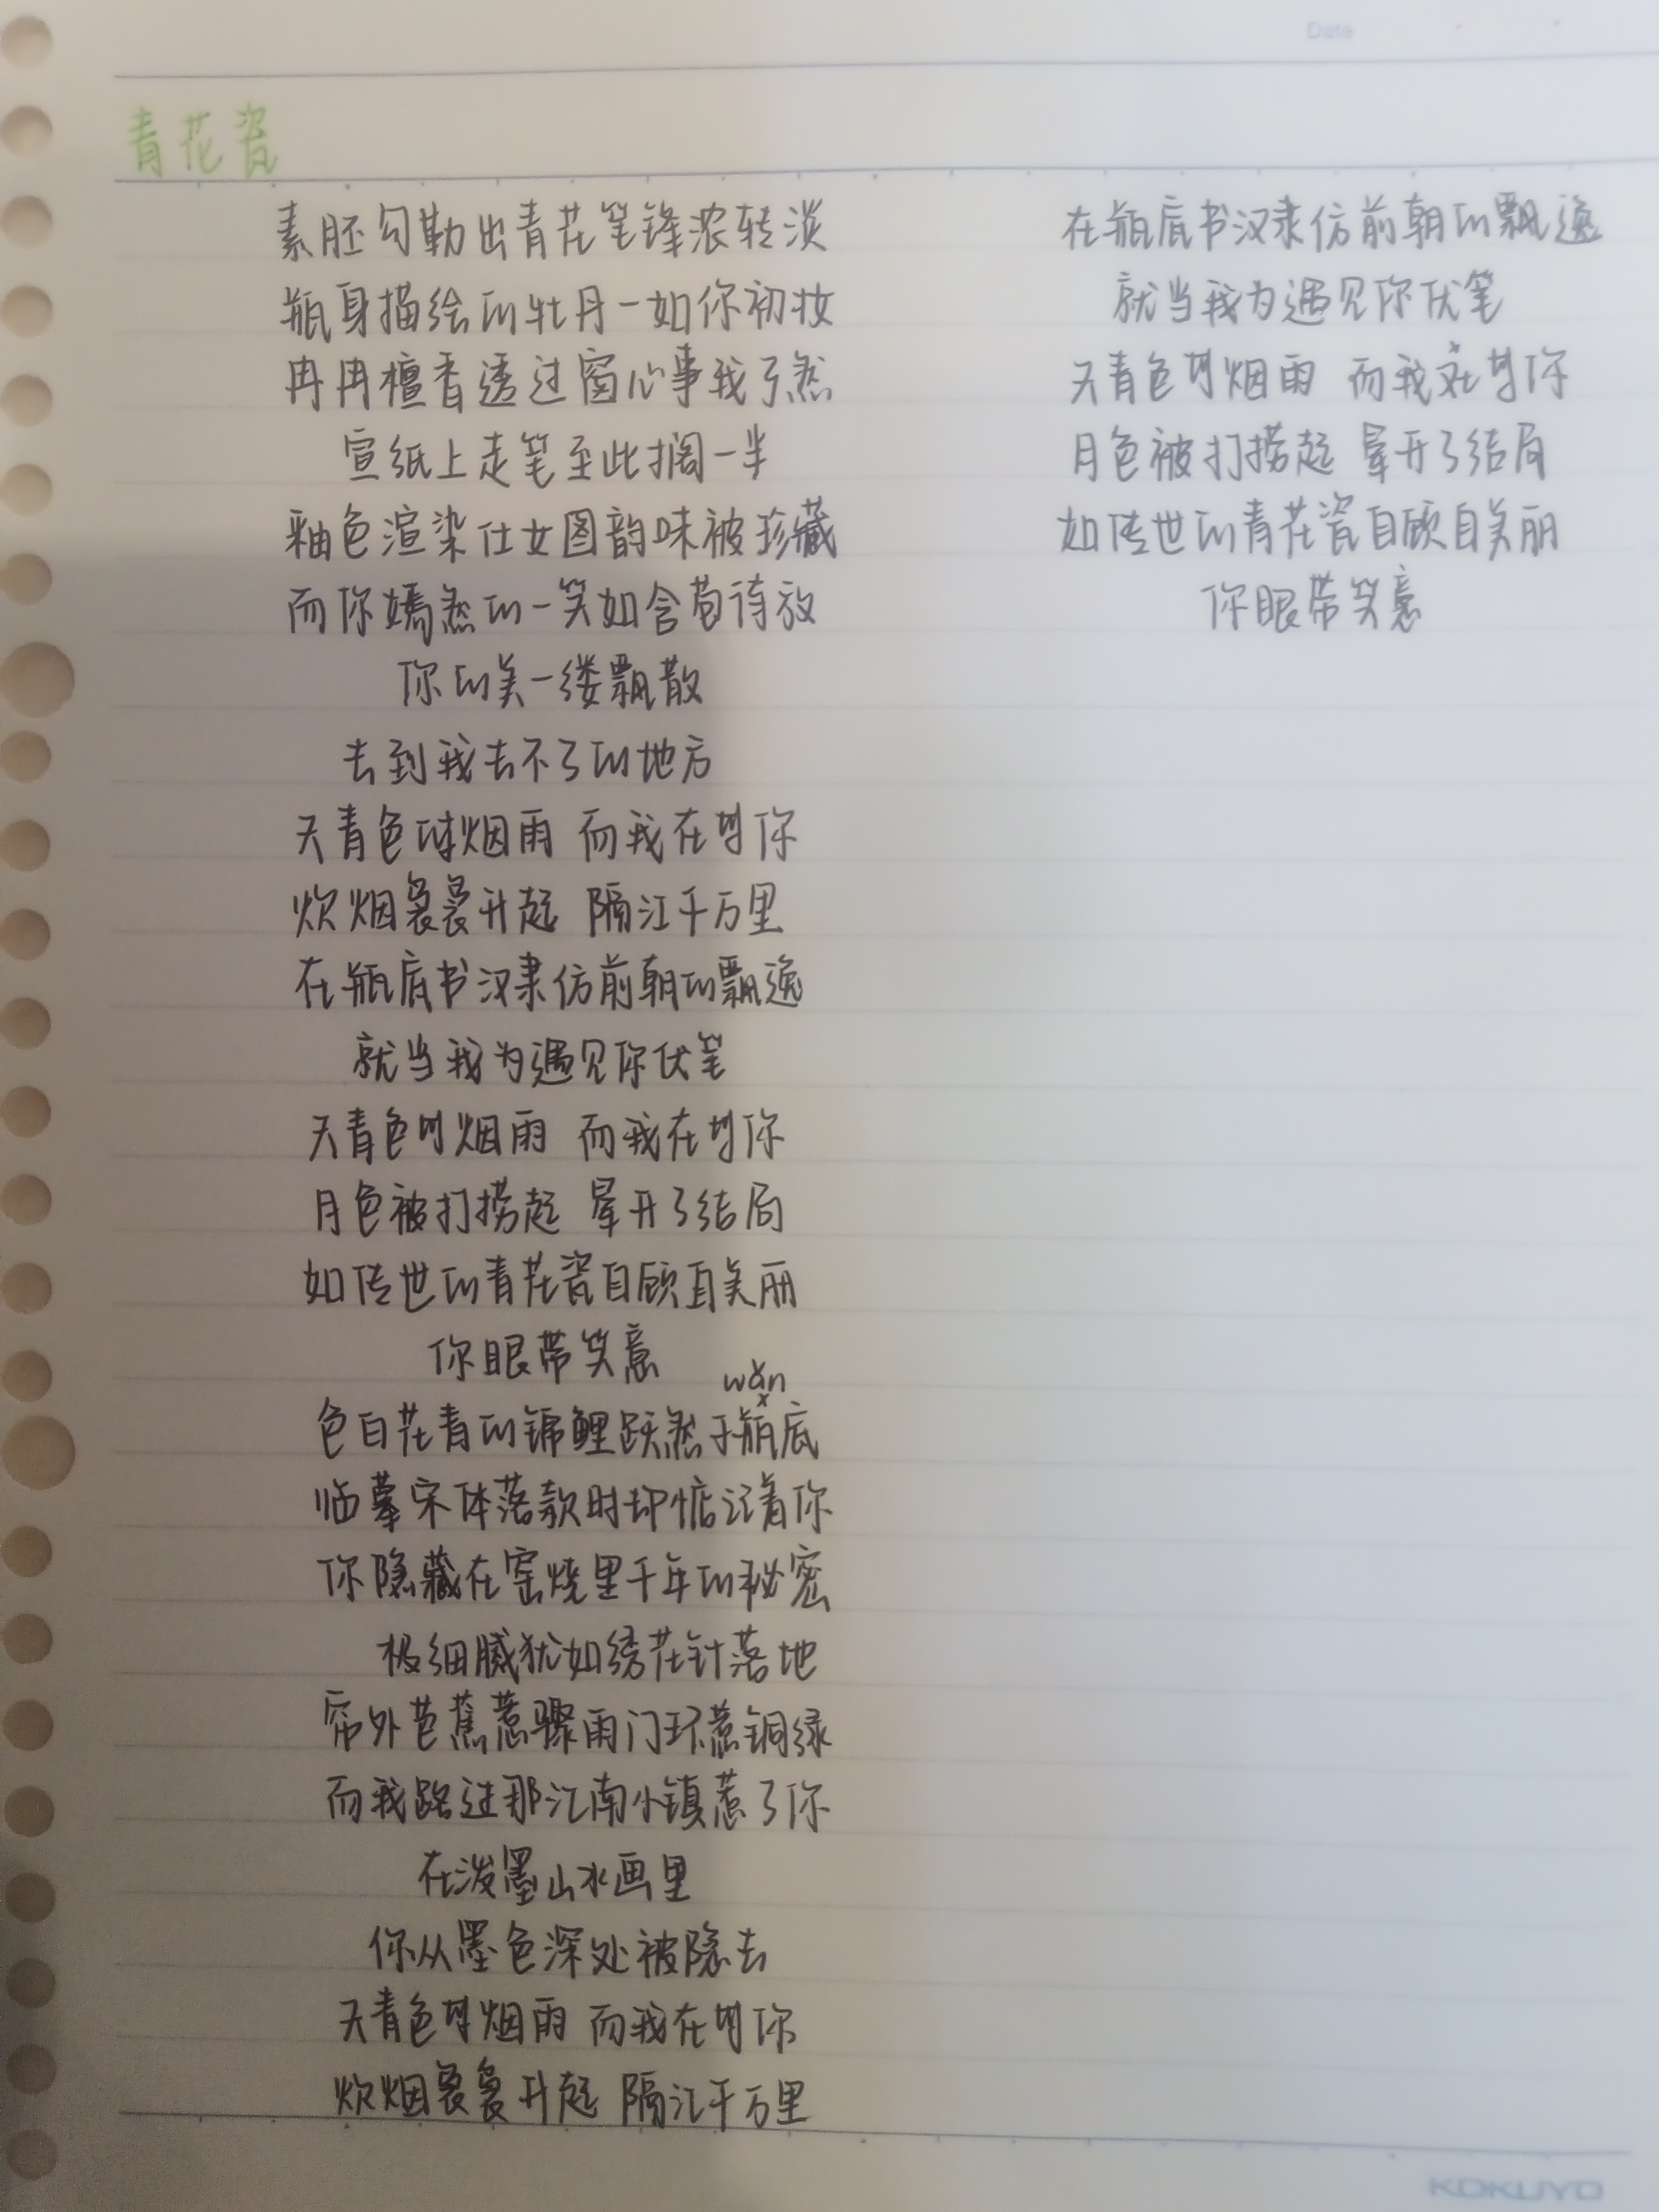 Date
青花瓷
素胚勾勒出青花笔锋浓转淡
瓶身描绘的牡丹一如你初妆
冉冉檀香透过窗心事我了然
宣纸上走笔至此搁一半
釉色渲染仕女图韵味被珍藏
而你嫣然的一笑如含苞待放
你的美一缕飘散
去到我去不了的地方
天青色等烟雨 而我在等你
炊烟袅袅升起 隔江千万里
在瓶底书汉隶仿前朝的飘逸
就当我为遇见你伏笔
天青色等烟雨 而我在等你
月色被打捞起 晕开了结局
如传世的青花瓷自顾自美丽
你眼带笑意
wǎn
色白花青的锦鲤跃然于瓶底
临摹宋体落款时却惦记着你
你隐藏在窑烧里千年的秘密
极细腻犹如绣花针落地
帘外芭蕉惹骤雨门环惹铜绿
而我路过那江南小镇惹了你
在泼墨山水画里
你从墨色深处被隐去
天青色等烟雨 而我在等你
炊烟袅袅升起 隔江千万里
在瓶底书汉隶仿前朝的飘逸
就当我为遇见你伏笔
天青色等烟雨 而我在等你
月色被打捞起 晕开了结局
如传世的青花瓷自顾自美丽
你眼带笑意
KOKUYO